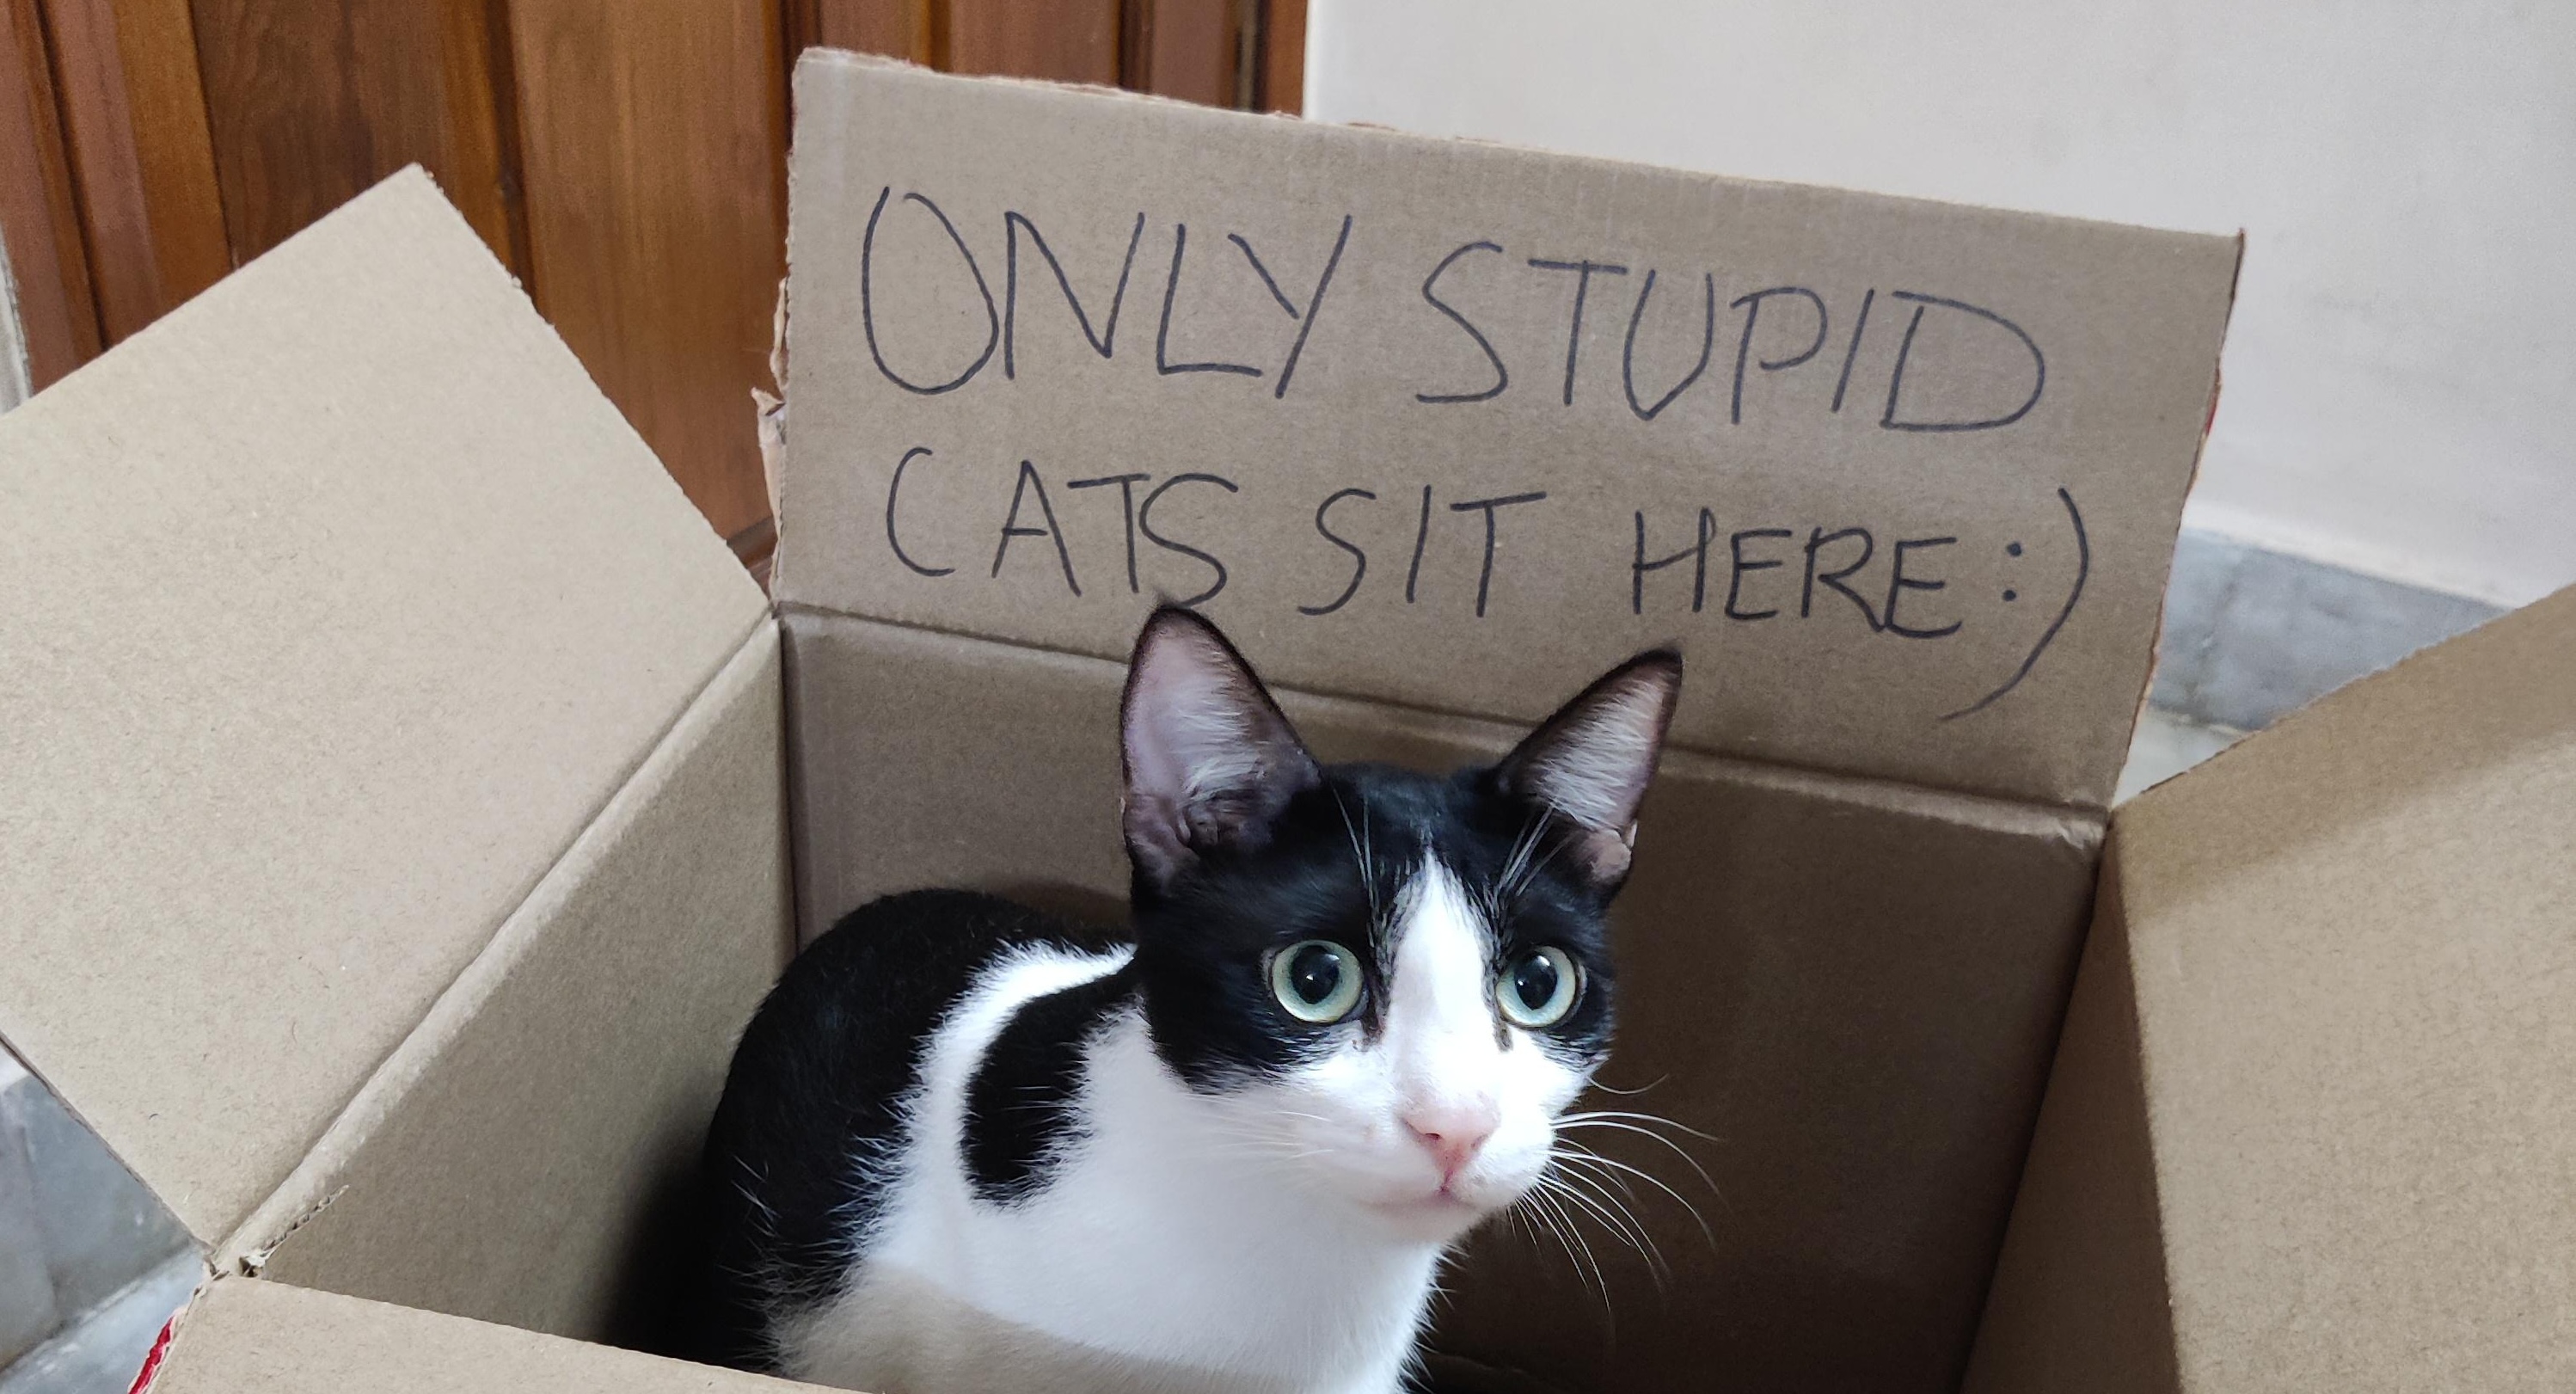 ONLY STUPID
CATS SIT HERE :)